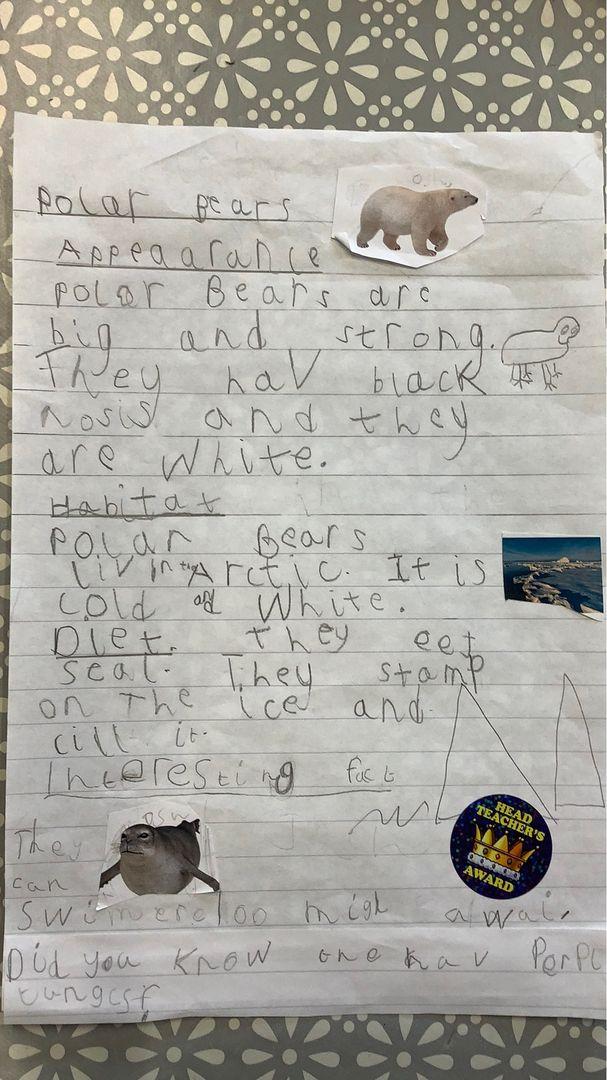 Polar Bears
Appeaarance
Polar Bears are
big and strong.
They hav black
nosis and they
are white.
Habitat
Polar Bears
liv in the Arctic. It is
cold and white.
Diet. They eet
seal. They stamp
on The ice and
cill it.
Interesting fact
They
can
swim 100 migl awai.
Did you know one hav PerPl
tungest
HEAD
TEACHER'S
AWARD